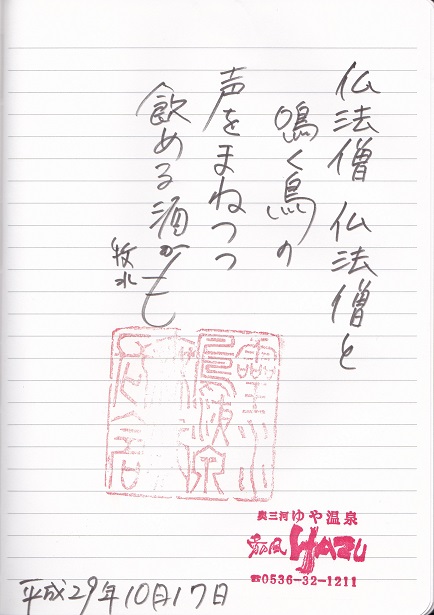 仏法僧 仏法僧と
鳴く鳥の
声をまねつつ
飲める酒かも
牧水
奥三河 ゆや温泉
HAZU
☎0536-32-1211
平成29年10月17日